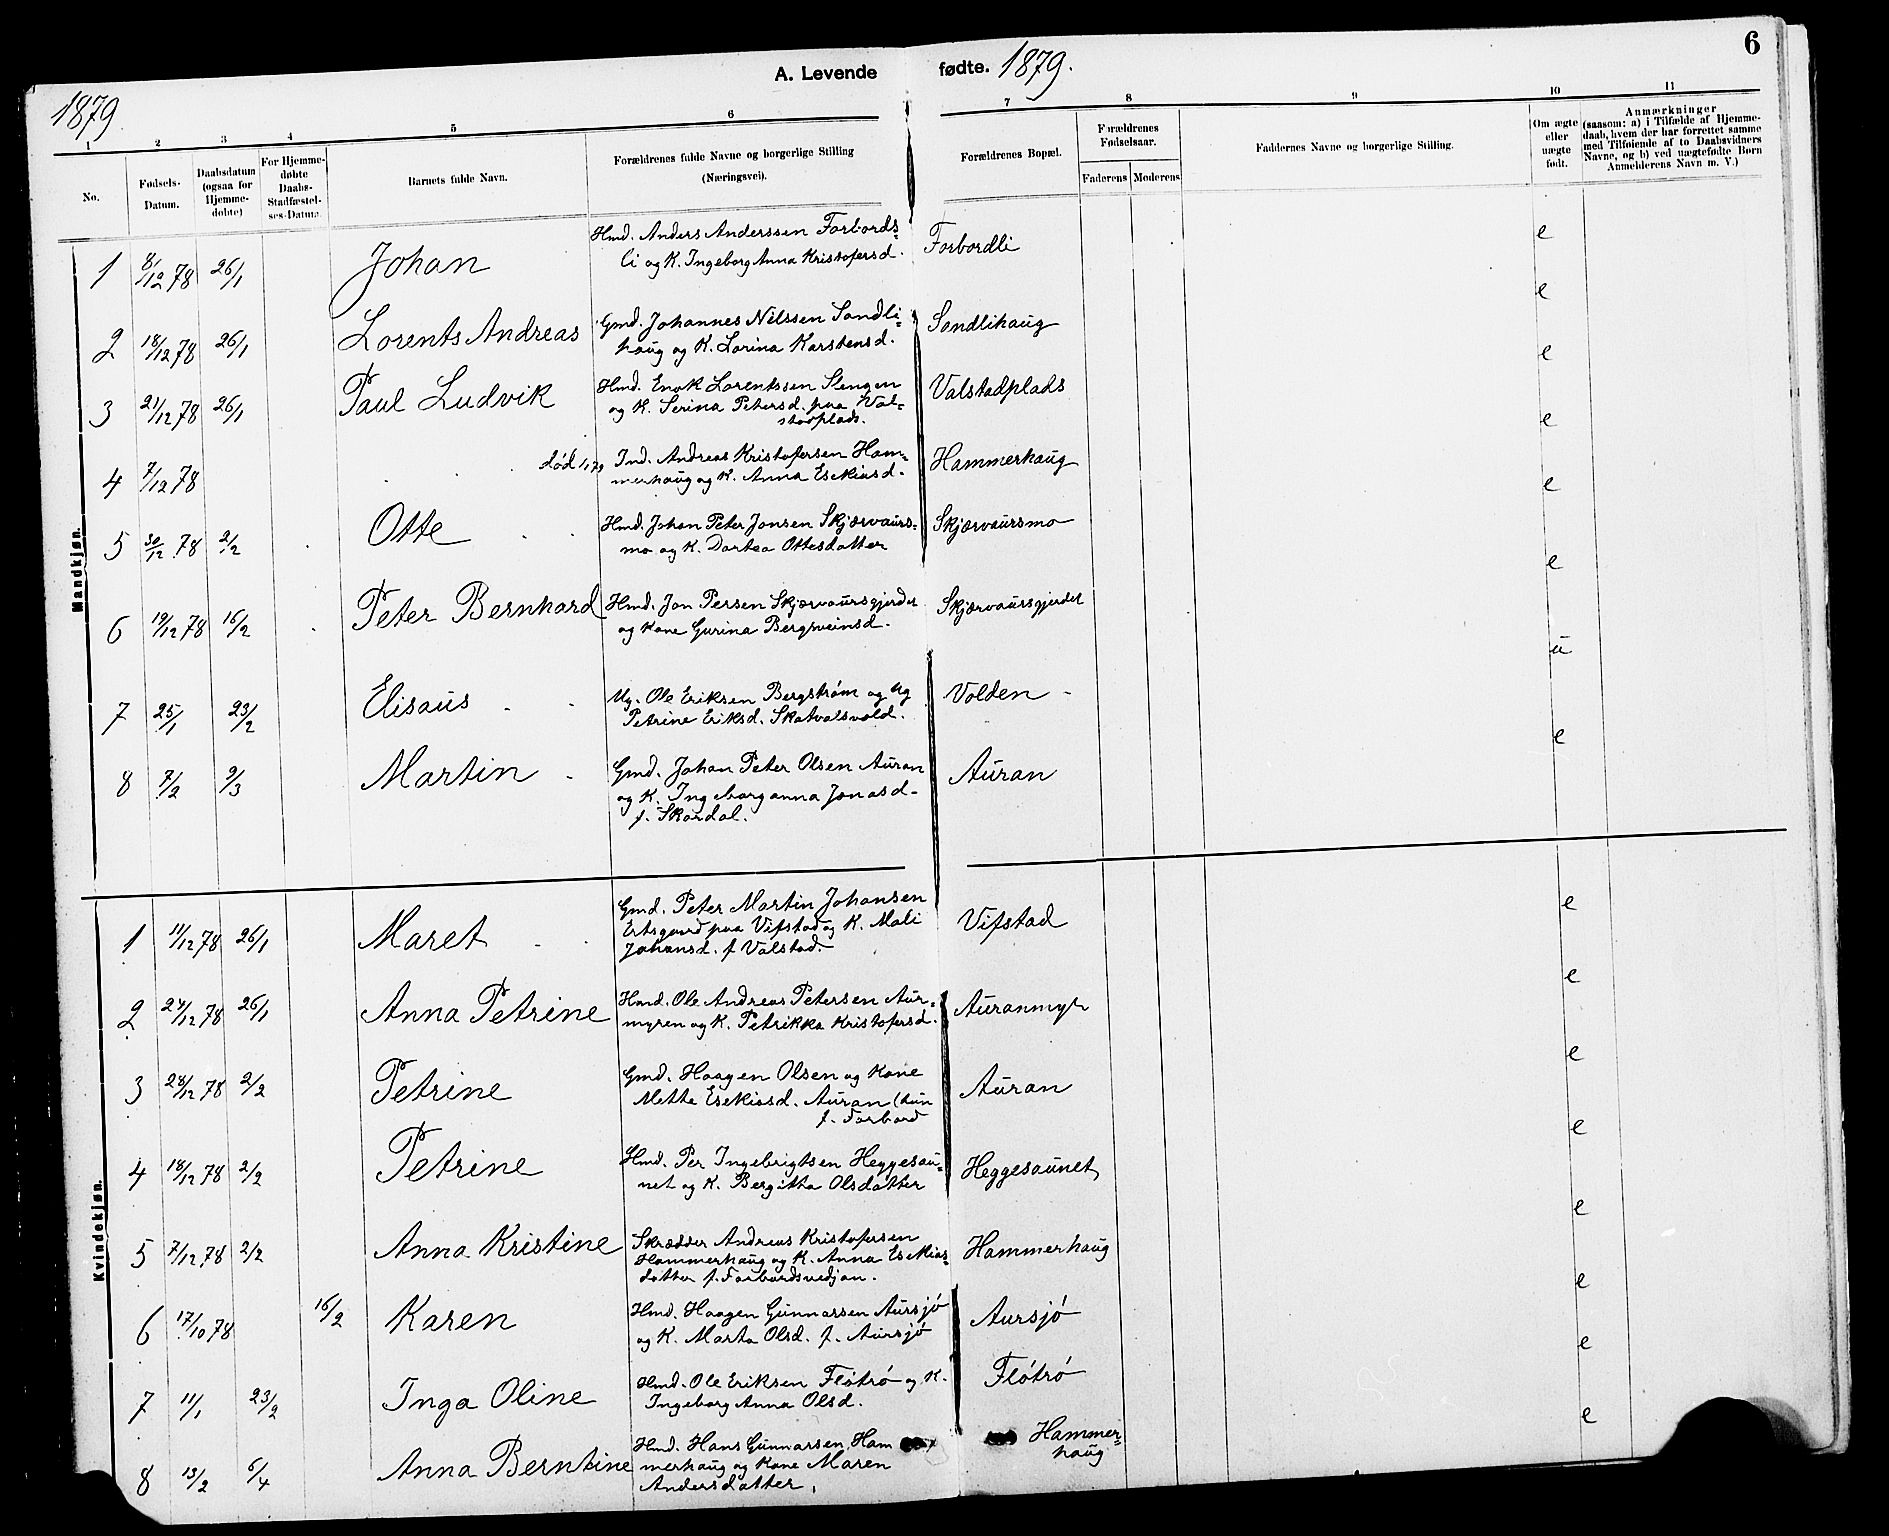 6
A. Levende fødte. 1879.
1879
1 2 3 4 5 6 7 8 9 10 11
No.
Fødsels-Datum.
Daabsdatum (ogsaa for Hjemme-døbte)
For Hjemme-døbte Daabs-Stadfæstel-ses-Datum.
Barnets fulde Navn.
Forældrenes fulde Navne og borgerlige Stilling
(Næringsvei).
Forældrenes Bopæl.
Forældrenes Fødselsaar.
Faderens Moderens
Faddernes Navne og borgerlige Stilling.
Om ægte eller uægte født.
Anmærkninger
(saasom: a) i Tilfælde af Hjemme-
daab, hvem der har forrettet samme
med Tilføiende af to Daabsvidners
Navne, og b) ved uægtefødte Børn
Anmelderens Navn m. V.)
Mandkjøn.
1 8/12 78 26/1 Johan Hmd. Anders Anderssen Forbords-
li og K. Ingeborg Anna Kristofersd. Forbordli e
2 18/12 78 26/1 Lorents Andreas Gmd. Johannes Nilssen Sandli-
haug og K. Larina Karstensd. Sandlihaug e
3 21/12 78 26/1 Paul Ludvik Hmd. Enok Lorentssen Slengen
og K. Serina Petersd. paa Val-
stadplads. Valstadplads e
4 7/12 78 død Ind. Andreas Kristofersen Ham-
merhaug og K. Anna Esekiasd. Hammerhaug e
5 30/12 78 2/2 Otte Hmd. Johan Peter Jonsen Skjærvaurs-
mo og K. Dortea Ottesdatter Skjærvaursmo e
6 19/12 78 16/2 Peter Bernhard Hmd. Jon Persen Skjærvaursgjerdet
og Kone Gurina Bergsveinsd. Skjærvaursgjerdet e
7 25/1 23/2 Elisaus Ug. Ole Eriksen Bergstrøm og Ug
Petrine Eriksd. Skatvalsvold. Volden u
8 7/2 9/3 Martin Gmd. Johan Peter Olsen Auran
og K. Ingeborganna Jonasd.
f. Skardal. Auran e
Kvindekjøn.
1 11/12 78 26/1 Maret Gmd. Peter Martin Johansen
Ertsgaard paa Vifstad og K. Mali
Johansd. f Valstad. Vifstad e
2 24/12 78 26/1 Anna Petrine Hmd. Ole Andreas Petersen Aur-
myren og K. Petrikka Kristofersd. Auranmyr e
3 28/12 78 2/2 Petrine Gmd. Haagen Olsen og Kone
Mette Esekiasd. Auran (hun
f. Forbord Auran e
4 18/12 78 2/2 Petrine Hmd. Per Ingebrigtsen Heggesau-
net og K. Bergitta Olsdatter Heggesaunet e
5 7/12 78 2/2 Anna Kristine Skrædder Andreas Kristofersen
Hammerhaug og K. Anna Esekias-
datter f. Forbordsvedjan. Hammerhaug e
6 17/10 78 16/2 Karen Hmd. Haagen Gunnarsen Aursjø
og K. Marta Olsd. f. Aursjø Aursjø e
7 11/1 23/2 Inga Oline Hmd. Ole Eriksen Fløtrø og K.
Ingeborg Anna Olsd. Fløtrø e
8 13/2 6/4 Anna Berntine Hmd. Hans Gunnarsen Ham
merhaug og Kone Maren
Andersdatter. Hammer-
haug e